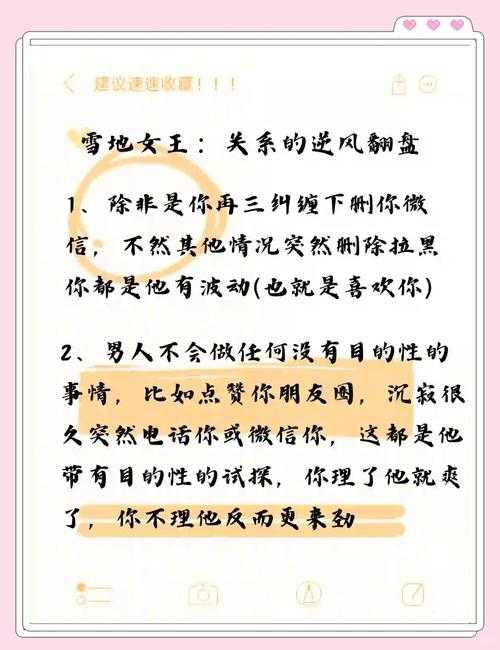 建议速速收藏！！！
雪地女王：关系的逆风翻盘
1、除非是你再三纠缠下删你微
信，不然其他情况突然删除拉黑
你都是他有波动(也就是喜欢你)
2、男人不会做任何没有目的性的
事情，比如点赞你朋友圈，沉寂很
久突然电话你或微信你，这都是他
带有目的性的试探，你理了他就爽
了，你不理他反而更来劲